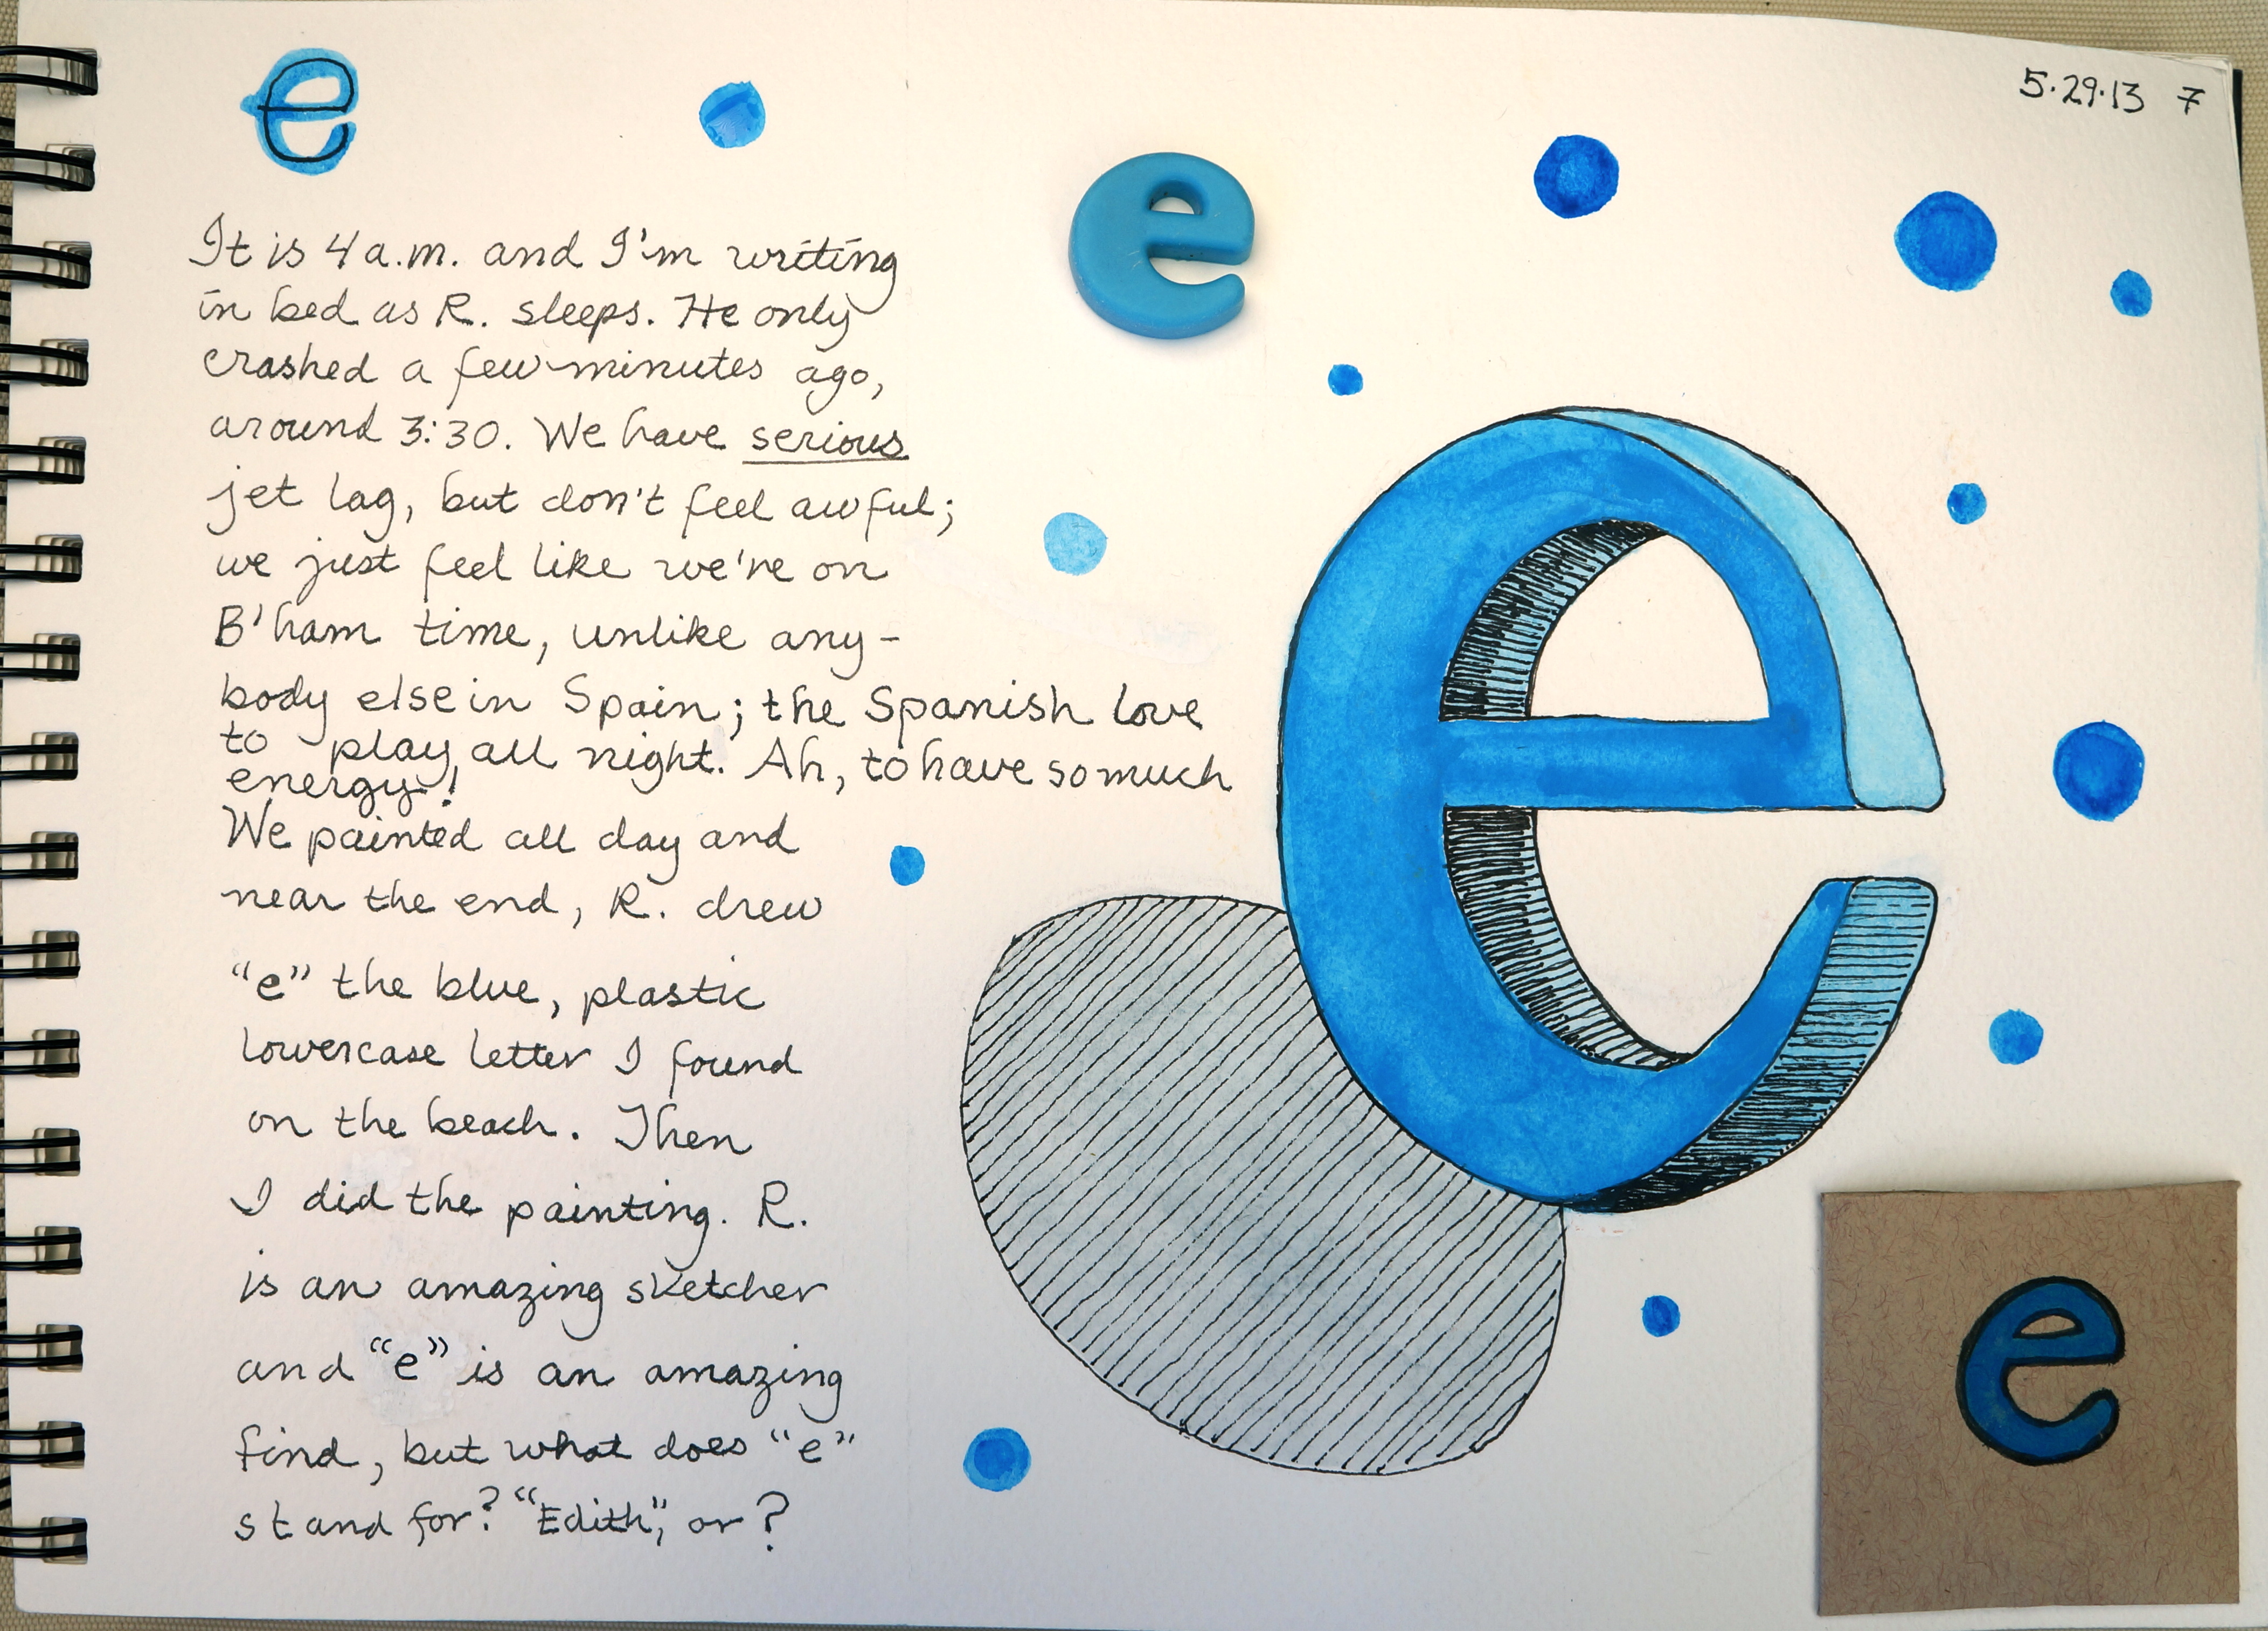 e
5.29.13 7
e
It is 4 a.m. and I'm writing
in bed as R. sleeps. He only
crashed a few minutes ago,
around 3:30. We have serious
jet lag, but don't feel awful;
we just feel like we're on
B'ham time, unlike any-
body else in Spain; the Spanish love
to play all night. Ah, to have so much
energy!
We painted all day and
near the end, R. drew
"e" the blue, plastic
lowercase letter I found
on the beach. Then
I did the painting. R.
is an amazing sketcher
and "e" is an amazing
find, but what does "e"
stand for? "Edith", or?
e
e